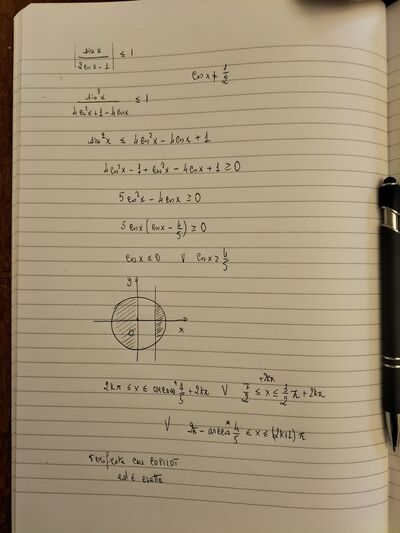 |sin x / 2cos x - 1| ≤ 1
cos x ≠ 1/2
sin²x / 4cos²x + 1 - 4cos x ≤ 1
sin²x ≤ 4cos²x - 4cos x + 1
4cos²x - 1 + cos²x - 4cos x + 1 ≥ 0
5cos²x - 4cos x ≥ 0
5cos x (cos x - 4/5) ≥ 0
cos x ≤ 0 ∨ cos x ≥ 4/5
y
x
0
+2kπ
2kπ ≤ x ≤ arccos 4/5 + 2kπ ∨ π/2 ≤ x ≤ 3/2 π + 2kπ
∨ - arccos 4/5 ≤ x ≤ (2k+1)π
verificata con COPILOT
ed è esatta